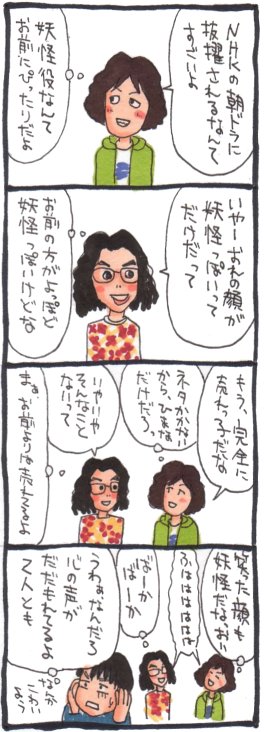 NHKの朝ドラに
抜擢されるなんて
すごいよ
妖怪役なんて
お前にぴったりだよ
いやーおれの顔が
妖怪っぽいって
だけだって
お前の方がよっぽど
妖怪っぽいけどな
もう、完全に
売れっ子だな
ネタかかな
から、ひまな
だけだろっ
いやいや
そんなこと
ないって
まぁお前よりは売れてるよ
笑った顔も
妖怪だなおい
ふははははは
ばーか
ばーか
うわぁなんだろ
心の声が
だだもれてるよ
2人とも
なんか
こわい
よう